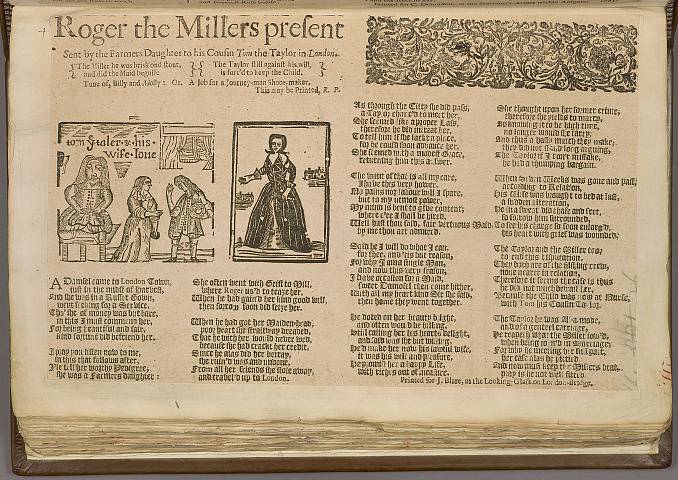 Roger the Millers present
Sent by the Farmers Daughter to his Cousin Tom the Taylor in London.
The Miller he was brisk and stout,
and did the Maid beguile
The Taylor still against his will,
is forc'd to keep the Child.
Tune of, Billy and Molly: Or, A Job for a Journey-man Shoo-maker.
This may be Printed, R. P.
tom ye taler & his
wife Ione
A Damsel came to London Town,
just in the midst of harvest,
And she was in a Russet Gown,
went seeking for a Service.
Tho' she of money was but bare,
in this I must commend her,
For being beautiful and fair,
kind fortune did befriend her.
I pray you listen now to me,
in this that follows after,
I'le tell her worthy Pedigree,
she was a Farmers daughter:
She often went with Grist to Mill,
where Roger us'd to teaze her,
When he had gain'd her kind good will,
then forty soon did seize her.
When he had got her Maiden-head,
poor heart she straitway dreamed,
That he with her would never wed,
because she had crackt her credit.
Since he alas did her betray,
she ruin'd was and undone,
From all her friends she stole away,
and travel'd up to London.
As through the City she did pass,
a Taylor chanc'd to meet her,
She seemed like a proper Lass,
therefore he did intreat her.
To tell him if she lackt a place,
for he could soon advance her,
She seemed with a modest Grace,
returning him this answer.
The want of that is all my care,
I have this very hower,
No pains nor labour will I spare,
but to my utmost power,
My mind is bent to give content;
where e're I shall be hired,
Well hast thou said, fair vertuous Maid,
by me thou art admir'd.
Said he I will do what I can,
for thee, and 'tis but reason,
For why I am a single Man,
and now this very season,
I have occasion for a Maid,
sweet Damosel then come hither,
With all my heart kind Sir she said,
then home they went together.
He doted on her beauty bright,
and often would be billing,
Still calling her his hearts delight,
and said was she but willing,
He'd make her now his lawful wife,
it was his will and pleasure,
He promis'd her a happy Life,
with riches out of measure.
She thought upon her former crime,
therefore she yields to marry,
As knowing it to be high time,
no longer would she tarry.
And thus a hasty match they make;
they did not stand long arguing,
The Taylor if I don't mistake,
he had a thumping bargain.
When sixteen Weeks was gone and past,
according to Relation,
His Wife was brought to bed at last,
a sudden alteration,
He in a sweat did chafe and fret,
sorrow him surrounded,
To see his charge so soon enlarg'd,
his heart with grief was wounded.
The Taylor and the Miller too,
to end this disputation,
They both are of the filching crew,
none nearer in relation,
Therefore it seems the case is thus
he did not much dispute her,
Because the Child was now at Nurse,
with Tom his Cousin Taylor.
The Taylor he was
and of a genteel carriage,
He reapt what the Miller sow'd,
when being joyn'd in marriage:
For why he meeting her full part,
her case alas he pittied
And now must keep the Millers brat,
pray is he not well fitted.
Printed for J. Blare, at the Looking-Glass on London-Bridge.